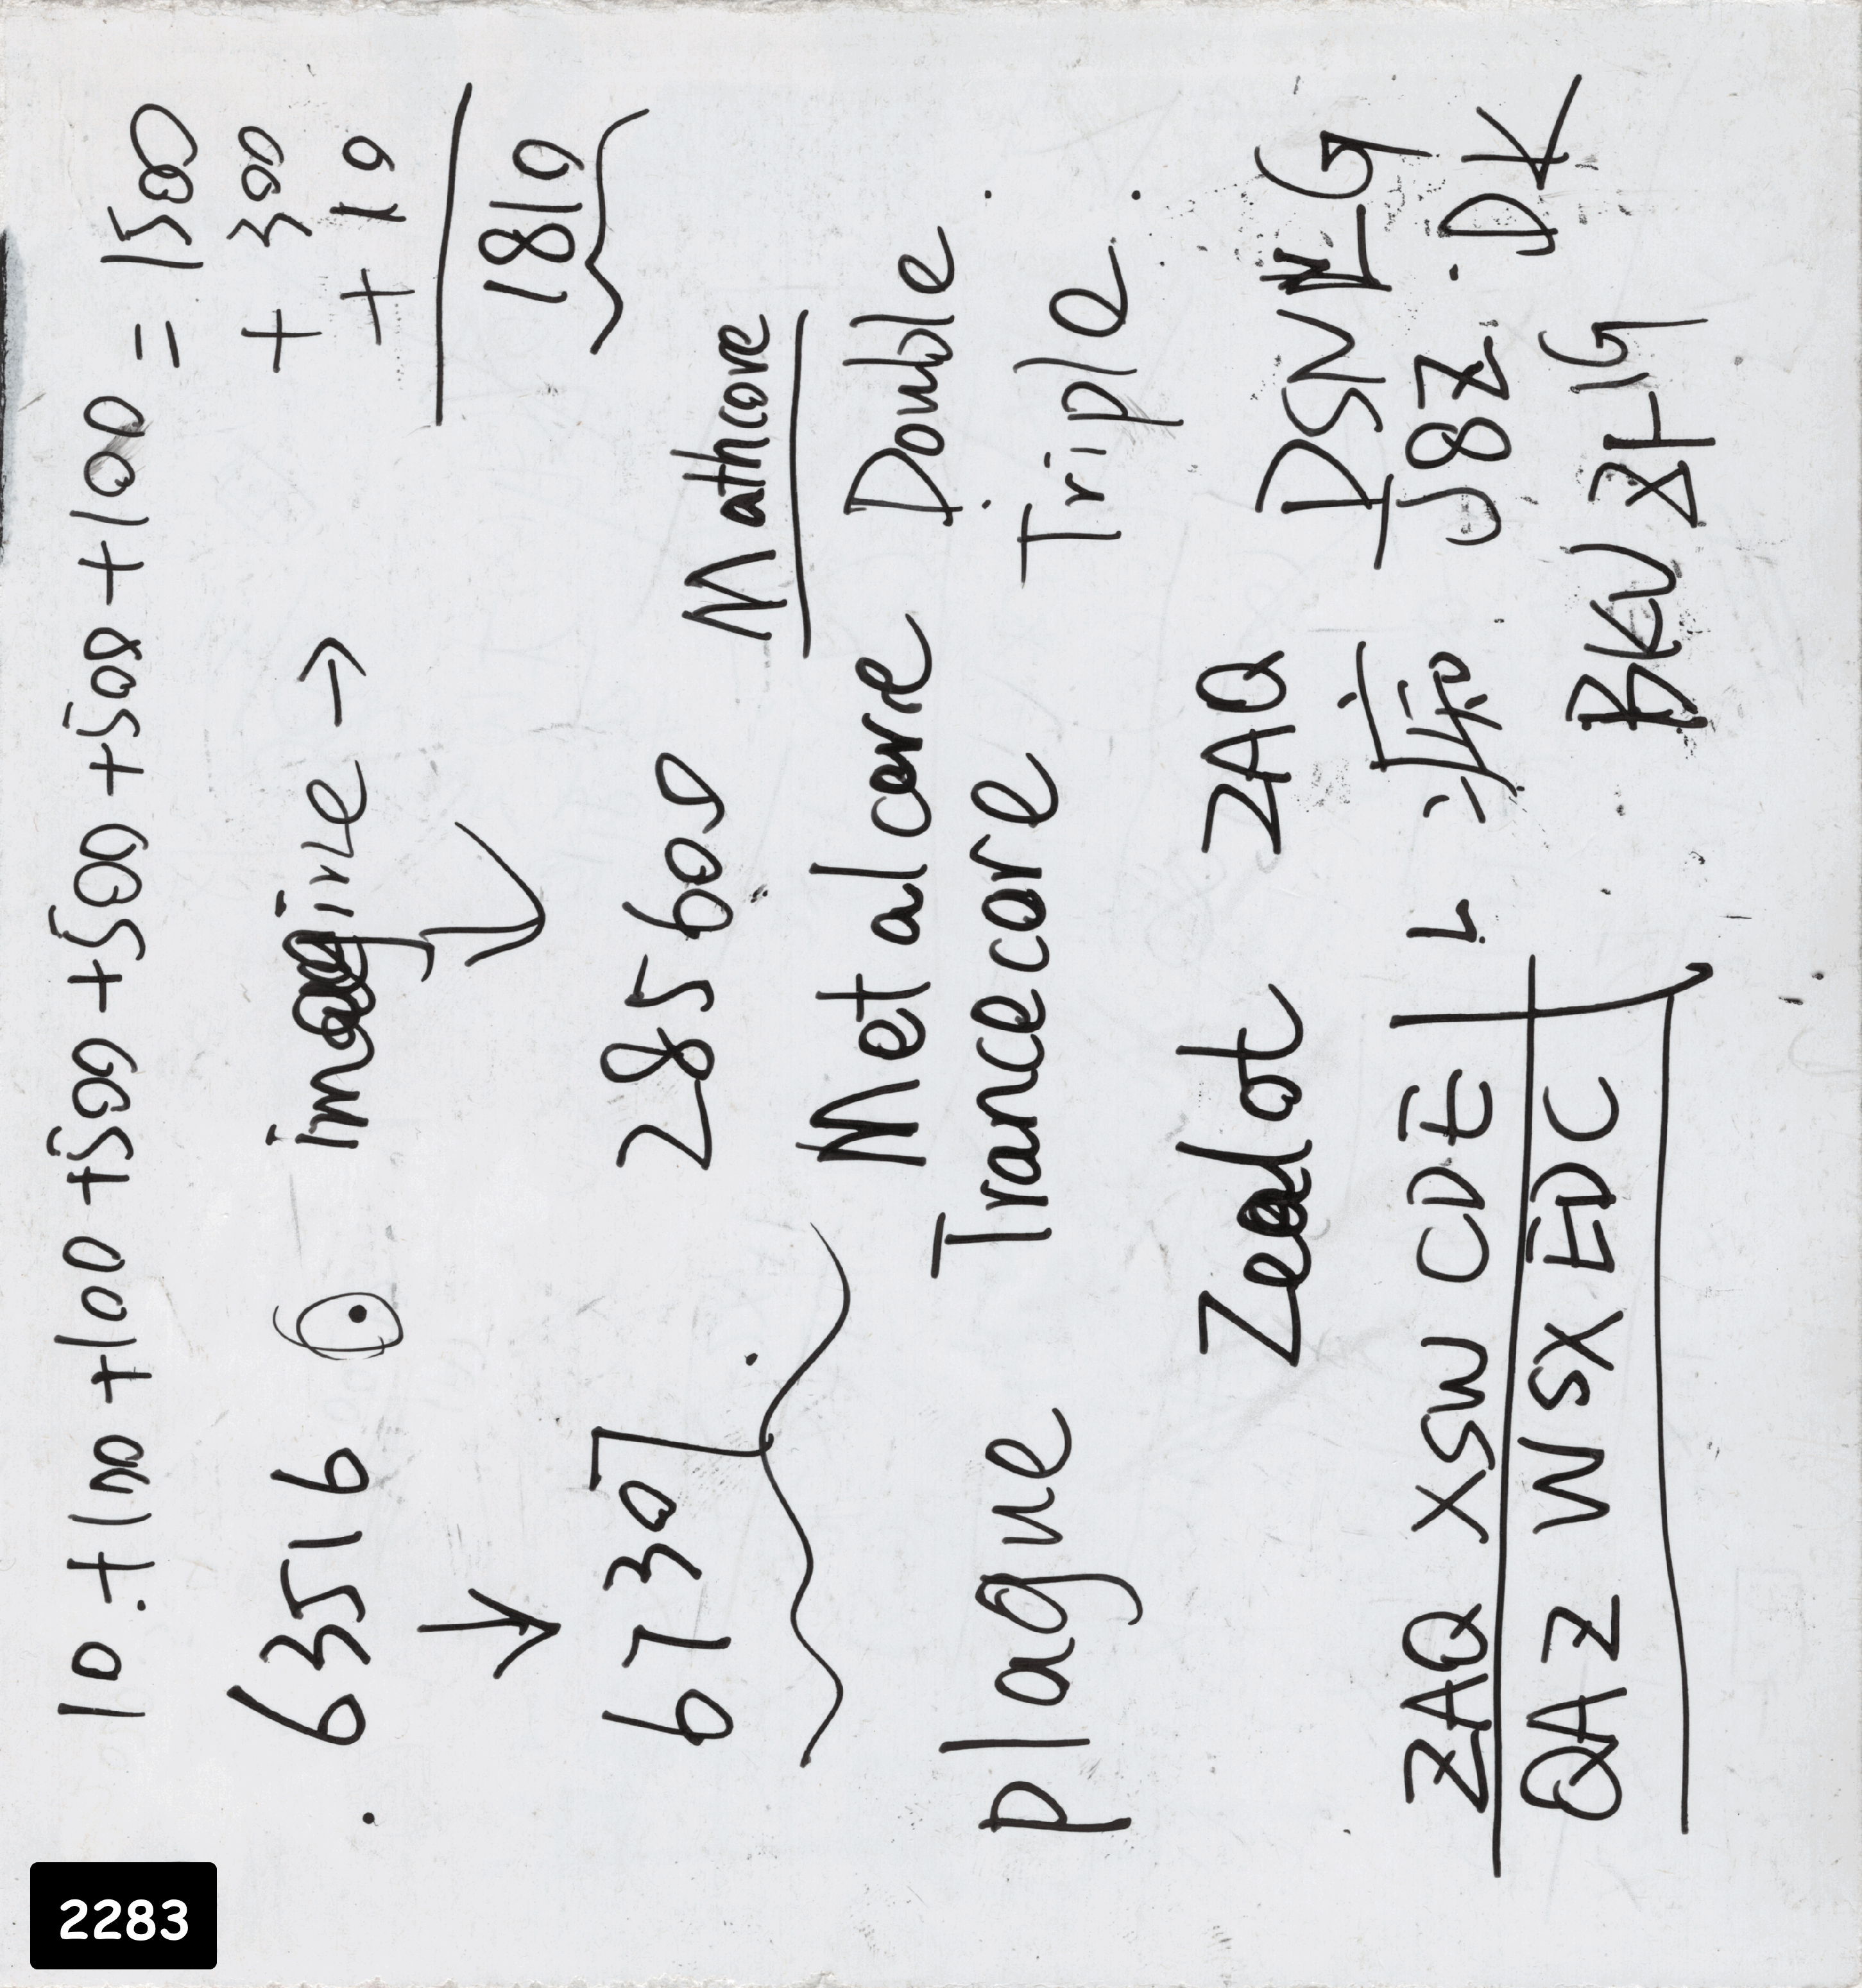 10 + 100 + 100 + 500 + 500 + 500 + 100 = 1500
+ 300
+ 10
1810
63516 imagine →
↓
67307
28560
Mathcore
Metalcore Double
plague Trancecore Triple
Zealot ZAQ
DSNLG
ZAQ XSW CDE
J8Z DK
QAZ WSX EDC
BKV 8HG
2283